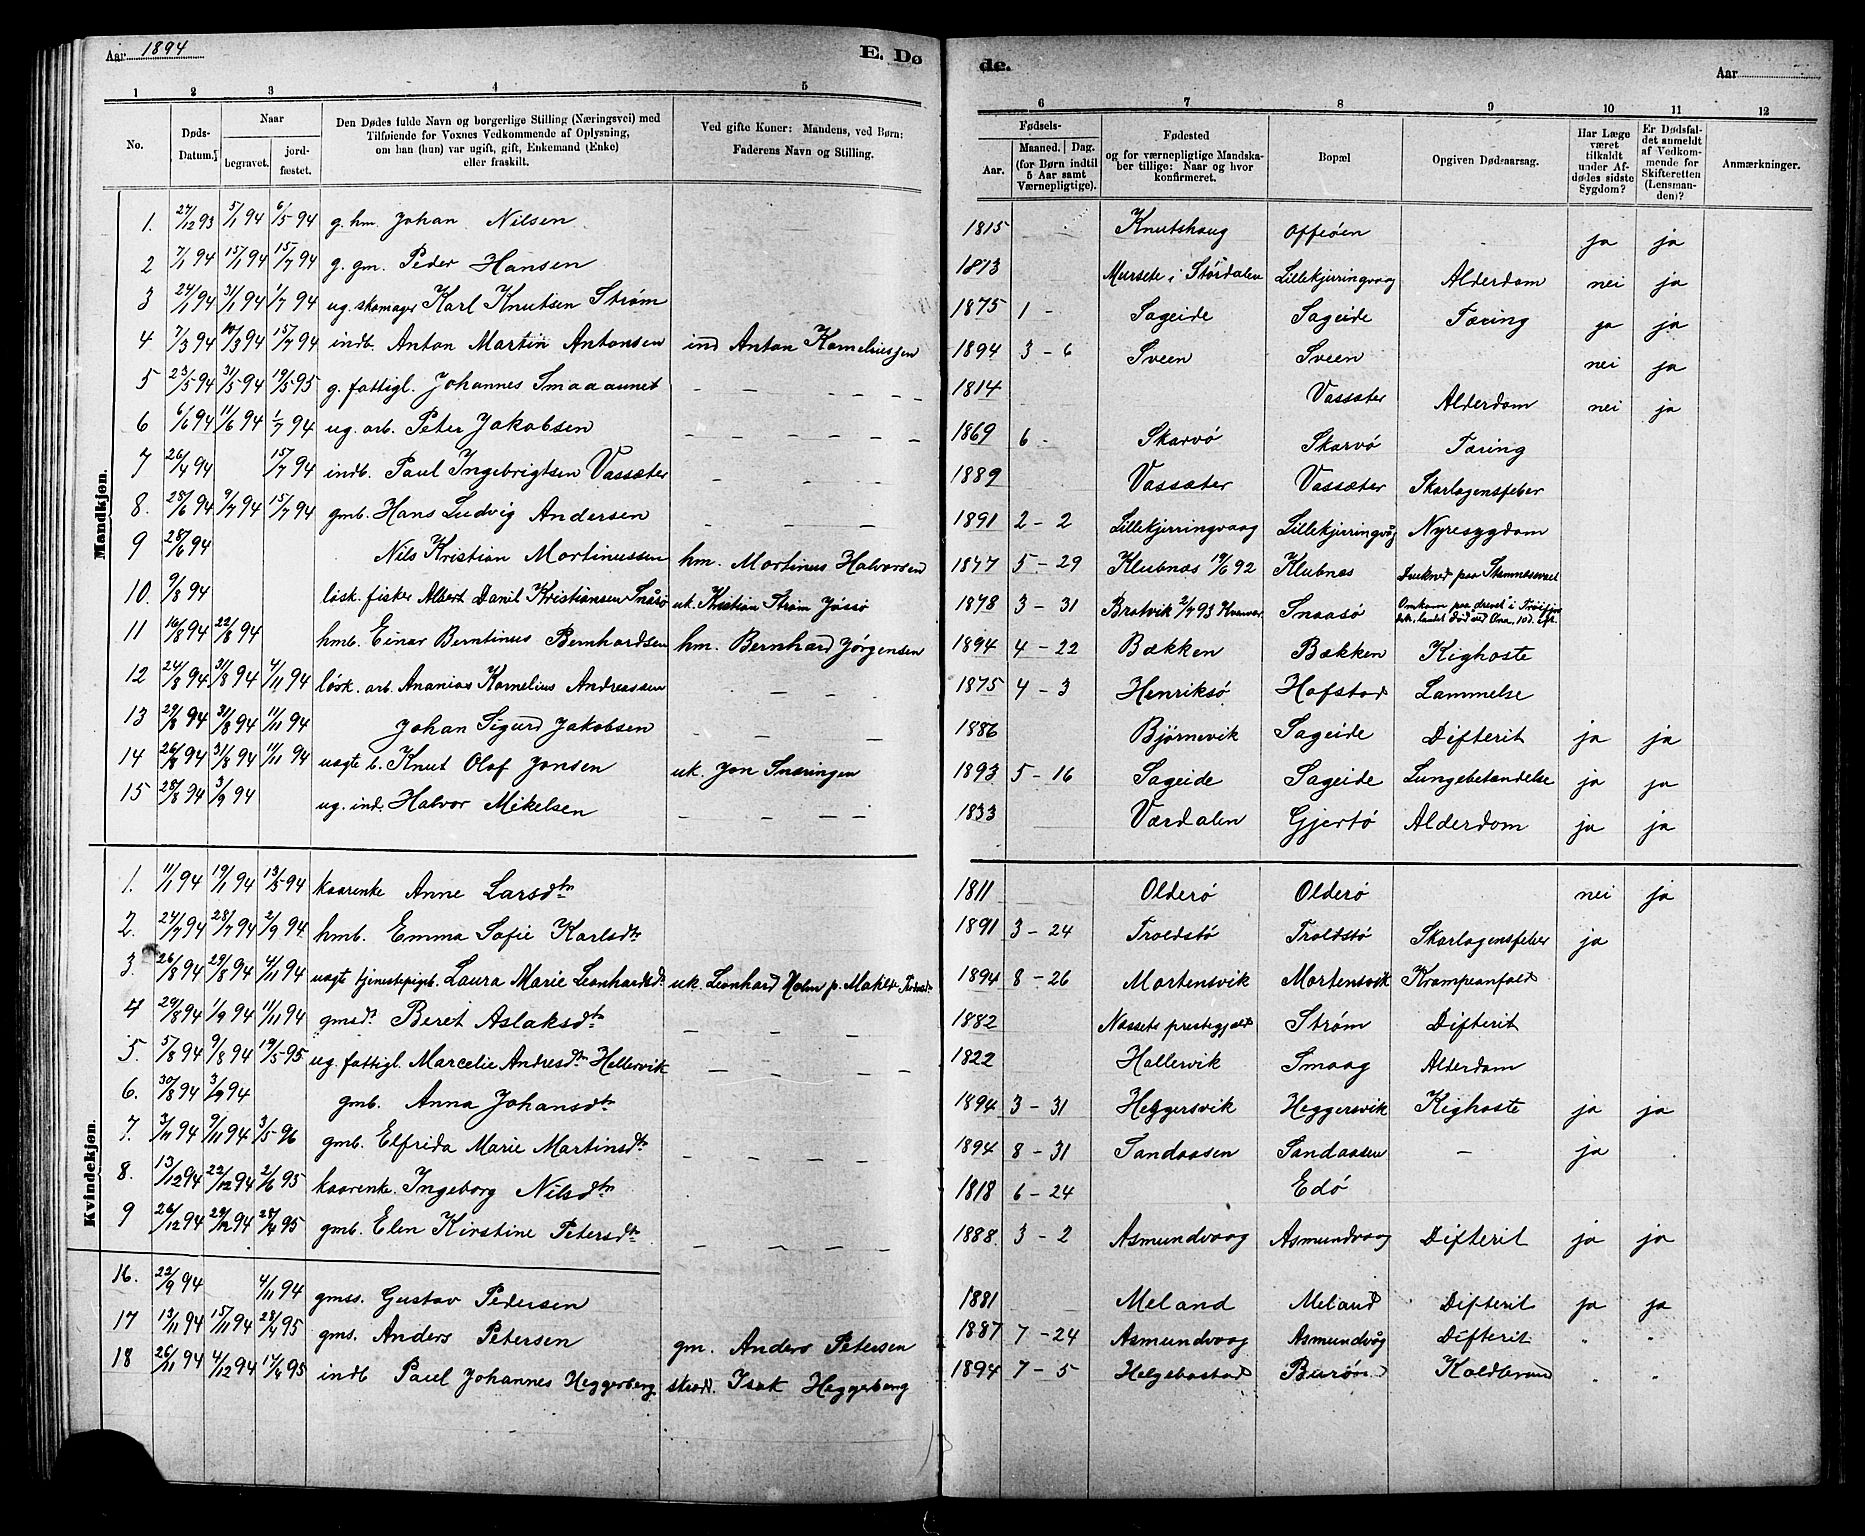 Aar 1894
E. Dø
de.
Aar
1 2 3 4 5 6 7 8 9 10 11 12
No.
Døds-Datum.
Naar
begravet.
jord-fæstet.
Den Dødes fulde Navn og borgerlige Stilling (Næringsvei) med
Tilføiende for Voxnes Vedkommende af Oplysning,
om han (hun) var ugift, gift, Enkemand (Enke)
eller fraskilt.
Ved gifte Koner: Mandens, ved Børn:
Faderens Navn og Stilling.
Fødsels-
Aar.
Maaned. Dag.
(for Børn indtil
5 Aar samt
Værnepligtige).
Fødested
og for værnepligtige Mandska-
ber tillige: Naar og hvor
konfirmeret.
Bopæl
Opgiven Dødsaarsag.
Har Læge
været
tilkaldt
under Af-
dødes sidste
Sygdom?
Er Dødsfal-
det anmeldt
af Vedkom-
mende for
Skifteretten
(Lensman-
den)?
Anmærkninger.
Mandkjøn.
1. 27/12 93 5/1 94 6/5 94 g. hm. Johan Nilsen 1815 Knutshaug ja ja
2 7/1 94 15/1 94 15/7 94 g. gm. Peder Hansen 1873 Mursete i Størdalen Lillekjerringvaag Alderdom nei ja
3 24/1 94 31/1 94 1/7 94 ug. skomager Karl Knutsen Strøm 1875 1 - Sageide Sageide Tæring ja ja
4 7/3 94 10/3 94 15/7 94 indb. Anton Martin Antonsen ind Anton Korneliussen 1894 3 - 6 Sveen Sveen nei ja
5 23/5 94 31/5 94 19/5 95 g. fattigl. Johannes Smaaaunet 1814 Vassæter Alderdom nei ja
6 6/6 94 11/6 94 1/7 94 ug. arb. Peter Jakobsen 1869 6 - Skarvø Skarvø Tæring
7 26/4 94 15/7 94 indb. Paul Ingebrigtsen Vassæter 1889 Vassæter Vassæter Skarlagensfeber
8. 28/6 94 9/7 94 15/7 94 gmb. Hans Ludvig Andersen 1891 2 - 2 Lillekjerringvaag Lillekjerringvåg Nyresygdom
9 28/6 94 Nils Kristian Mortinussen hm. Mortinus Halvorsen 1877 5 - 29 Klubnæs 19/6 92 Klubnæs
10. 9/8 94 løsk. fisker Albert Danil Kristiansen Snåsø uk. Kristian Strøm Jøssø 1878 3 - 31 Bratvik 2/7 93 Snaasø Omkom paa
11 16/8 94 22/8 94 hmb. Einar Berntinus Bernhardsen hm. Bernhard Jørgensen 1894 4 - 22 Bækken Bækken Kighoste
12 24/8 94 31/8 94 4/11 94 løsk. arb. Ananias Kornelius Andreassen 1875 4 - 3 Henriksø Hofstad Lammelse
13 29/8 94 31/8 94 11/11 94 Johan Sigurd Jakobsen 1886 Bjørnevik Sageide Difterit ja ja
14 26/8 94 31/8 94 11/11 94 uægte b. Knut Olaf Jonsen uk. Jon Snæringen 1893 5 - 16 Sageide Sageide Lungebetændelse ja ja
15 28/8 94 3/9 94 ug. ind. Halvor Mikelsen 1833 Værdalen Gjertø Alderdom ja ja
Kvindekjøn.
1. 11/1 94 19/1 94 13/5 94 kaarenke Anne Larsdtr 1811 Olderø Olderø nei ja
2. 24/7 94 28/7 94 2/9 94 hmb. Emma Sofie Karlsdtr 1891 3 - 24 Troldstø Troldstø Skarlagensfeber ja
3. 26/8 94 29/8 94 4/11 94 uægte tjenestepigeb. Laura Marie Leonhardsdtr uk. Leonhard Holm p. 1894 8 - 26 Mortensvik Mortensvik Krampeanfald
4 29/8 94 1/9 94 11/11 94 gmsdtr Beret Aslaksdtr 1882 Næssets prestegjeld Strøm Difterit
5. 5/8 94 9/8 94 19/5 95 ug. fattigl. Marcelie Andresdtr Hellervik 1822 Hallervik Smaag Alderdom
6. 30/8 94 3/9 94 gmb. Anna Johansdtr 1894 3 - 31 Heggersvik Heggersvik Kighoste ja ja
7. 3/11 94 9/11 94 3/5 96 gmb. Elfrida Marie Martinsdtr 1894 8 - 31 Sandaasen Sandaasen - ja
8. 13/12 94 22/12 94 2/6 95 kaarenke. Ingeborg Nilsdtr 1818 6 - 24 Edø
9 26/12 94 29/12 94 28/4 95 gmb. Elen Kirstine Petersdtr 1888 3 - 2 Asmundvaag Asmundvaag Difterit ja ja
16. 22/9 94 4/11 94 gmss. Gustav Pedersen 1881 Meland Meland Difterit ja ja
17 13/11 94 15/11 94 28/4 95 gms. Anders Petersen gm. Anders Petersen 1887 7 - 24 Asmundvaag Asmundvåg Difterit " "
18 26/11 94 4/12 94 17/4 95 indb Paul Johannes Heggerberg Isak Heggerberg 1894 7 - 5 Helgebostad Burøen Koldbrand " "